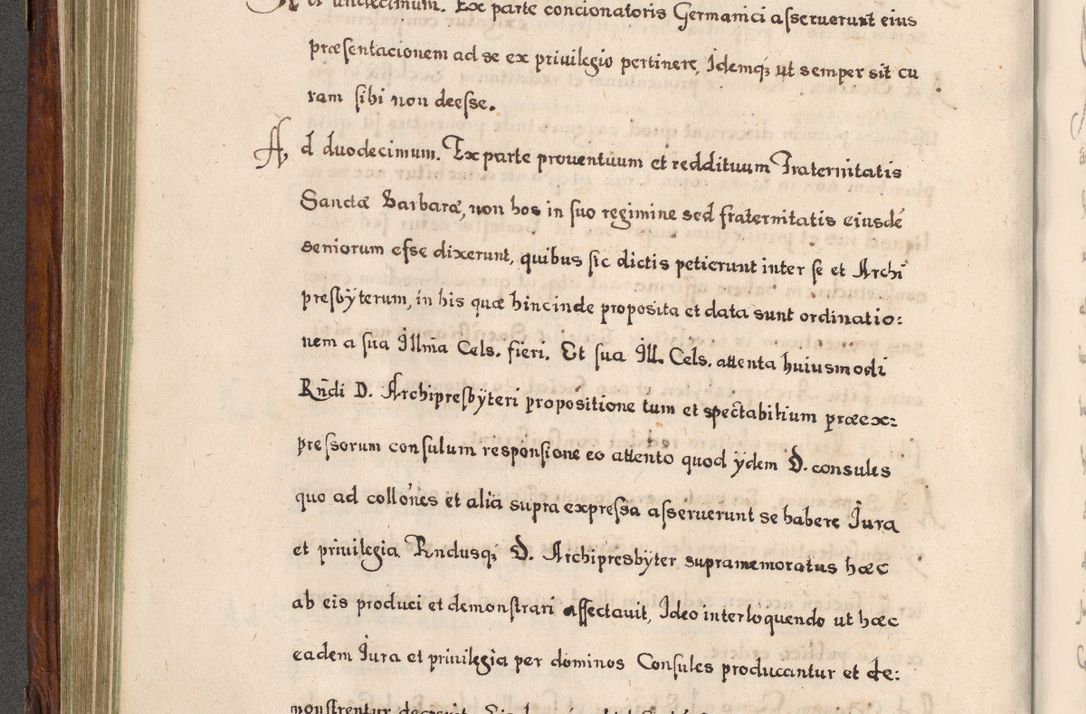 Ad undecimum. Ex parte concionatoris Germanici asseruerunt eius
præsentacionem ad se ex priuilegio pertinere, Idemq; ut semper sit cu
ram sibi non deesse.
Ad duodecimum. Ex parte prouentuum et reddituum Fraternitatis
Sanctæ Barbaræ, non hos in suo regimine sed fraternitatis eiusdē
seniorum esse dixerunt, quibus sic dictis petierunt inter se et Archi
presbÿterum, in his quæ hincinde proposita et data sunt ordinatio:
nem a sua Illma Cels. fieri. Et sua Ill. Cels. attenta huiusmodi
Rndi D. Archipresbÿteri propositione tum et spectabilium præex:
pressorum consulum responsione eo attento quod ÿdem D. consules
quo ad collones et alia supra expressa asseruerunt se habere Jura
et priuilegia Rndusq; D. Archipresbÿter supramemoratus hæc
ab eis produci et demonstrari affectauit, Ideo interloquendo ut hæc
eadem Jura et priuilegia per dominos Consules producantur et de:
monstrentur decreuit.